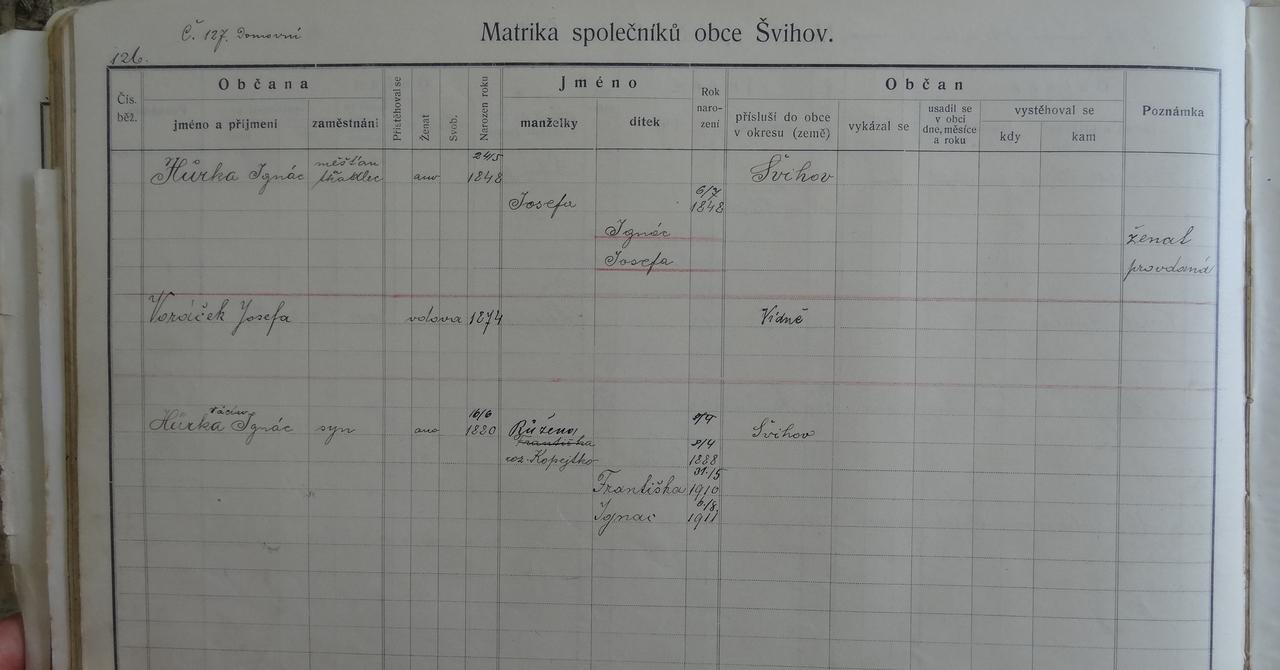 Č. 127. Domovní
Matrika společníků obce Švihov.
126.
Čís. běž.
Občana
jméno a příjmení
zaměstnání
Přistěhoval se
Ženat
Svob.
Narozen roku
Jméno
manželky
dítek
Rok naro- zení
Občan
přísluší do obce v okresu (země)
vykázal se
usadil se v obci dne, měsíce a roku
vystěhoval se
kdy
kam
Poznámka
měšťan 24/5
Hůrka Ignác tkadlec ano 1848 Švihov
6/7
Josefa 1848
Ignác ženat
Josefa provdaná
Voráček Josefa vdova 1874 Vídně
16/6
Hůrka Ignác syn ano 1880 Růžena Švihov
Františka 9/4
roz. Kopejtko 1888
31./5
Františka 1910
6/8
Ignac 1911